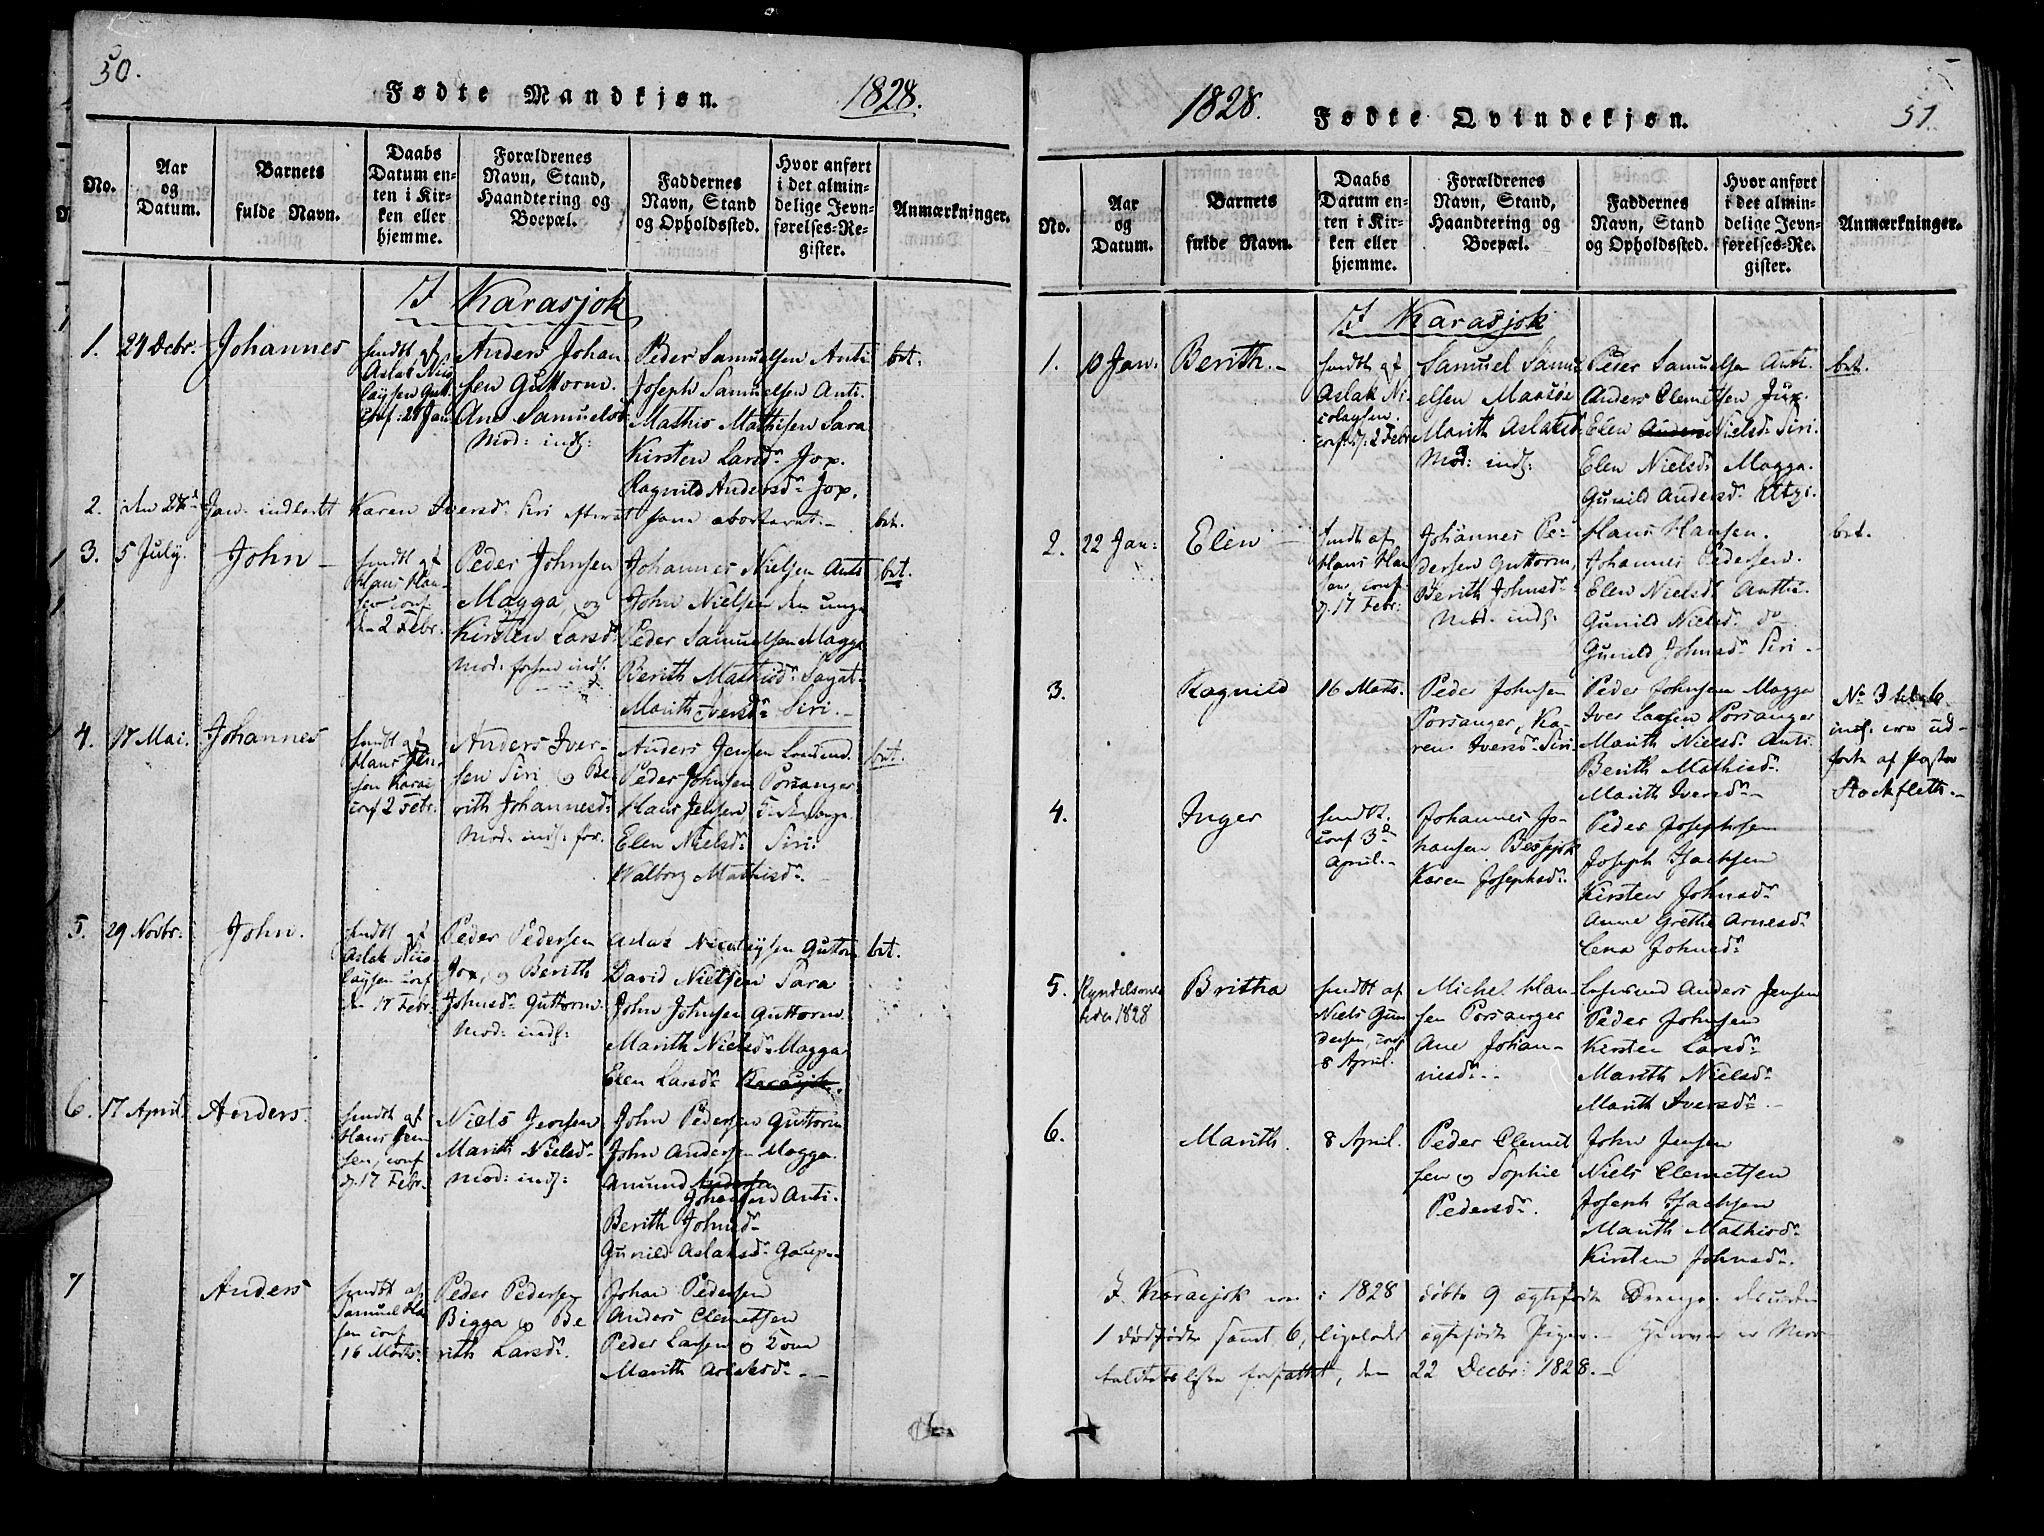 50.
Fødte Mandkjøn.
1828.
No.
Aar
og
Datum.
Barnets
fulde Navn.
Daabs
Datum en-
ten i Kir-
ken eller
hjemme.
Forældrenes
Navn, Stand,
Haandtering og
Boepæl.
Faddernes
Navn, Stand
og Opholdssted.
Hvor anført
i det almin-
delige Jevn-
førelses-Re-
gister.
Anmærkninger.
I Karasjok
1.
24 Decbr.
Johannes
hmdt af
Aslak Nico
laysen Gutt.
Conf. 21 Jan
Anders Johan
sen Guttorm.
Ane Samuelsd.
Mod: indf:
Peder Samuelsen Anti
Joseph Samuelsen Anti.
Mathis Mathisen Sara
Kirsten Larsdr Jox.
Ragnild Andersdr Jox.
bet.
2. den 28 Jan. Karen Iversdr Siri
bet.
3.
5 July.
John
hmdt af
Hans Han
sen conf
den 2 Febr.
Peder Johnsen
Magga, og
Kirsten Larsdr
Mod. indf.
Johannes Nielsen Anti
John Nielsen den unge
Peder Samuelsen Magga
Berith Mathisdr
Marith Iversdr Siri.
bet.
4.
17 Mai.
Johannes
hmdt af
Hans Jen
sen Karas
conf 2 Febr.
Anders Iver-
sen Siri og Be
rith Johannesdr
Mod: indf: for.
Anders Jensen
Peder Johnsen Porsanger
Hans Jensen
Elen Nielsdr Siri.
Walborg Mathisdr
bet.
5.
29 Novbr.
John.
hmdt af
Aslak Nico
laysen conf
den 17 Febr.
Peder Pedersen
Jox, og Berith
Johnsdr Guttorm
Mod: indf:
Aslak Nicolaysen Guttorm
David Nielsen Sara
John Johnsen Guttorm.
Marith Nielsdr Magga
Elen Larsdr Karasjok.
bet.
6.
17 April.
Anders
hmdt af
Hans Jen
sen, conf
d. 17 Febr.
Niels Jensen
Marith Nielsdr
Mod: indf:
John Pedersen Guttorm
John Andersen Magga.
Amund Andersen
Johansen Anti.
Berith Johnsdr
Gunild Aslaksdr
7
Anders
hmdt af
Samuel Han
sen conf
16 Marts.
Peder Pedersen
Bigga og Be
rith Larsdr.
Johan Pedersen
Anders Clemetsen
Peder Larsen og Kone
Marith Aslaksdr
1828.
Fødte Qvindekjøn.
51.
No.
Aar
og
Datum.
Barnets
fulde Navn.
Daabs
Datum en-
ten i Kir-
ken eller
hjemme.
Forældrenes
Navn, Stand,
Haandtering og
Boepæl.
Faddernes
Navn, Stand
og Opholdssted.
Hvor anført
i det almin-
delige Jevn-
førelses-Re-
gister.
Anmærkninger.
I Karasjok
1.
10 Jan.
Berith.
hmdt af
Aslak Ni-
colaysen.
conf. d. 2 Febr
Samuel Samu-
elsen
Marith Aslaksdr
Mod: indf:
Peder Samuelsen Anti.
Anders Clemetsen Jux.
Elen Anders Nielsdr Siri.
Elen Nielsdr Magga.
Gunild Andersdr Utzi.
bet.
2.
22 Jan:
Elen
hmdt af
Hans Han
sen, conf.
d. 17 Febr:
Johannes Pe-
dersen Guttorm,
Berith Johnsdr
Mod: indf:
Hans Hansen.
Johannes Pedersen.
Elen Nielsdr Anthi.
Gunild Nielsdr do
Gunild Johnsdr Siri
bet.
3.
Ragnild
16 Marts.
Peder Johnsen
Porsanger, Ka-
ren Iversdr Siri
Peder Johnsen Magga
Iver Larsen Porsanger
Marith Nielsdr Anti
Berith Mathisdr
Marith Iversdr
No 3 til 6
ere ud-
førte af Pastor
Stockfleth.
4.
Inger
hmdt.
conf 3de
April.
Johannes Jo-
hansen
Karen Josephsdr
Peder Josephsen
Joseph Isachsen
Kirsten Johnsdr
Anne Grethe Arnesdr
Lena Johnsdr
5.
Kyndelsmes
tider 1828
Britha
hmdt af
Niels Gun
dersen, conf
8 April.
Michel Han-
sen Porsanger
Ane Johan-
nesdr
Lensmd Anders Jensen
Peder Johnsen
Kirsten Larsdr
Marith Nielsdr
Marith Iversdr
6.
Marith.
8 April.
Peder Clemet
sen og Sophie
Pedersdr.
John Jensen
Niels Clemetsen
Joseph Isachsen
Marith Mathisdr
Kirsten Johnsdr.
I Karasjok ere i 1828 døbte 9 ægtefødte Drenge, desuden
1 dødfødte samt 6, ligeledes ægtefødte Piger.
forfattet, den 22 Decbr: 1828.